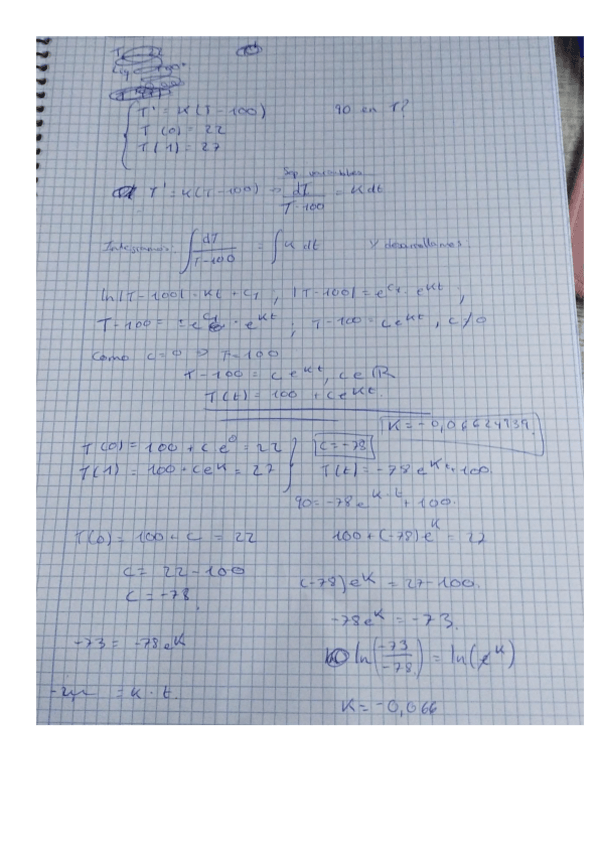 T' = K(T-100)    90 en T?
T(0) = 22
T(1) = 27
Sep. variables
T' = K(T-100) → dT/T-100 = K dt
Integramos: ∫ dT/T-100 = ∫ K dt    y desarrollamos.
ln|T-100| = Kt + C1 ; |T-100| = e^C1 · e^Kt ;
T-100 = e^C1 · e^Kt ; T-100 = Ce^Kt, C≠0
Como C=0 ⇒ T=100
T-100 = Ce^Kt, C∈ℝ
T(t) = 100 + Ce^Kt.
K = -0,06624939
T(0) = 100 + Ce^0 = 22    C = -78
T(1) = 100 + Ce^K = 27    T(t) = -78e^K·t + 100
90 = -78e^K·t + 100.
T(0) = 100 + C = 22    100 + (-78)e^K = 27
C = 22 - 100    (-78)e^K = 27 - 100.
C = -78    -78e^K = -73.
-73 = -78e^K    ln(-73/-78) = ln(e^K)
= K · t.    K = -0,066